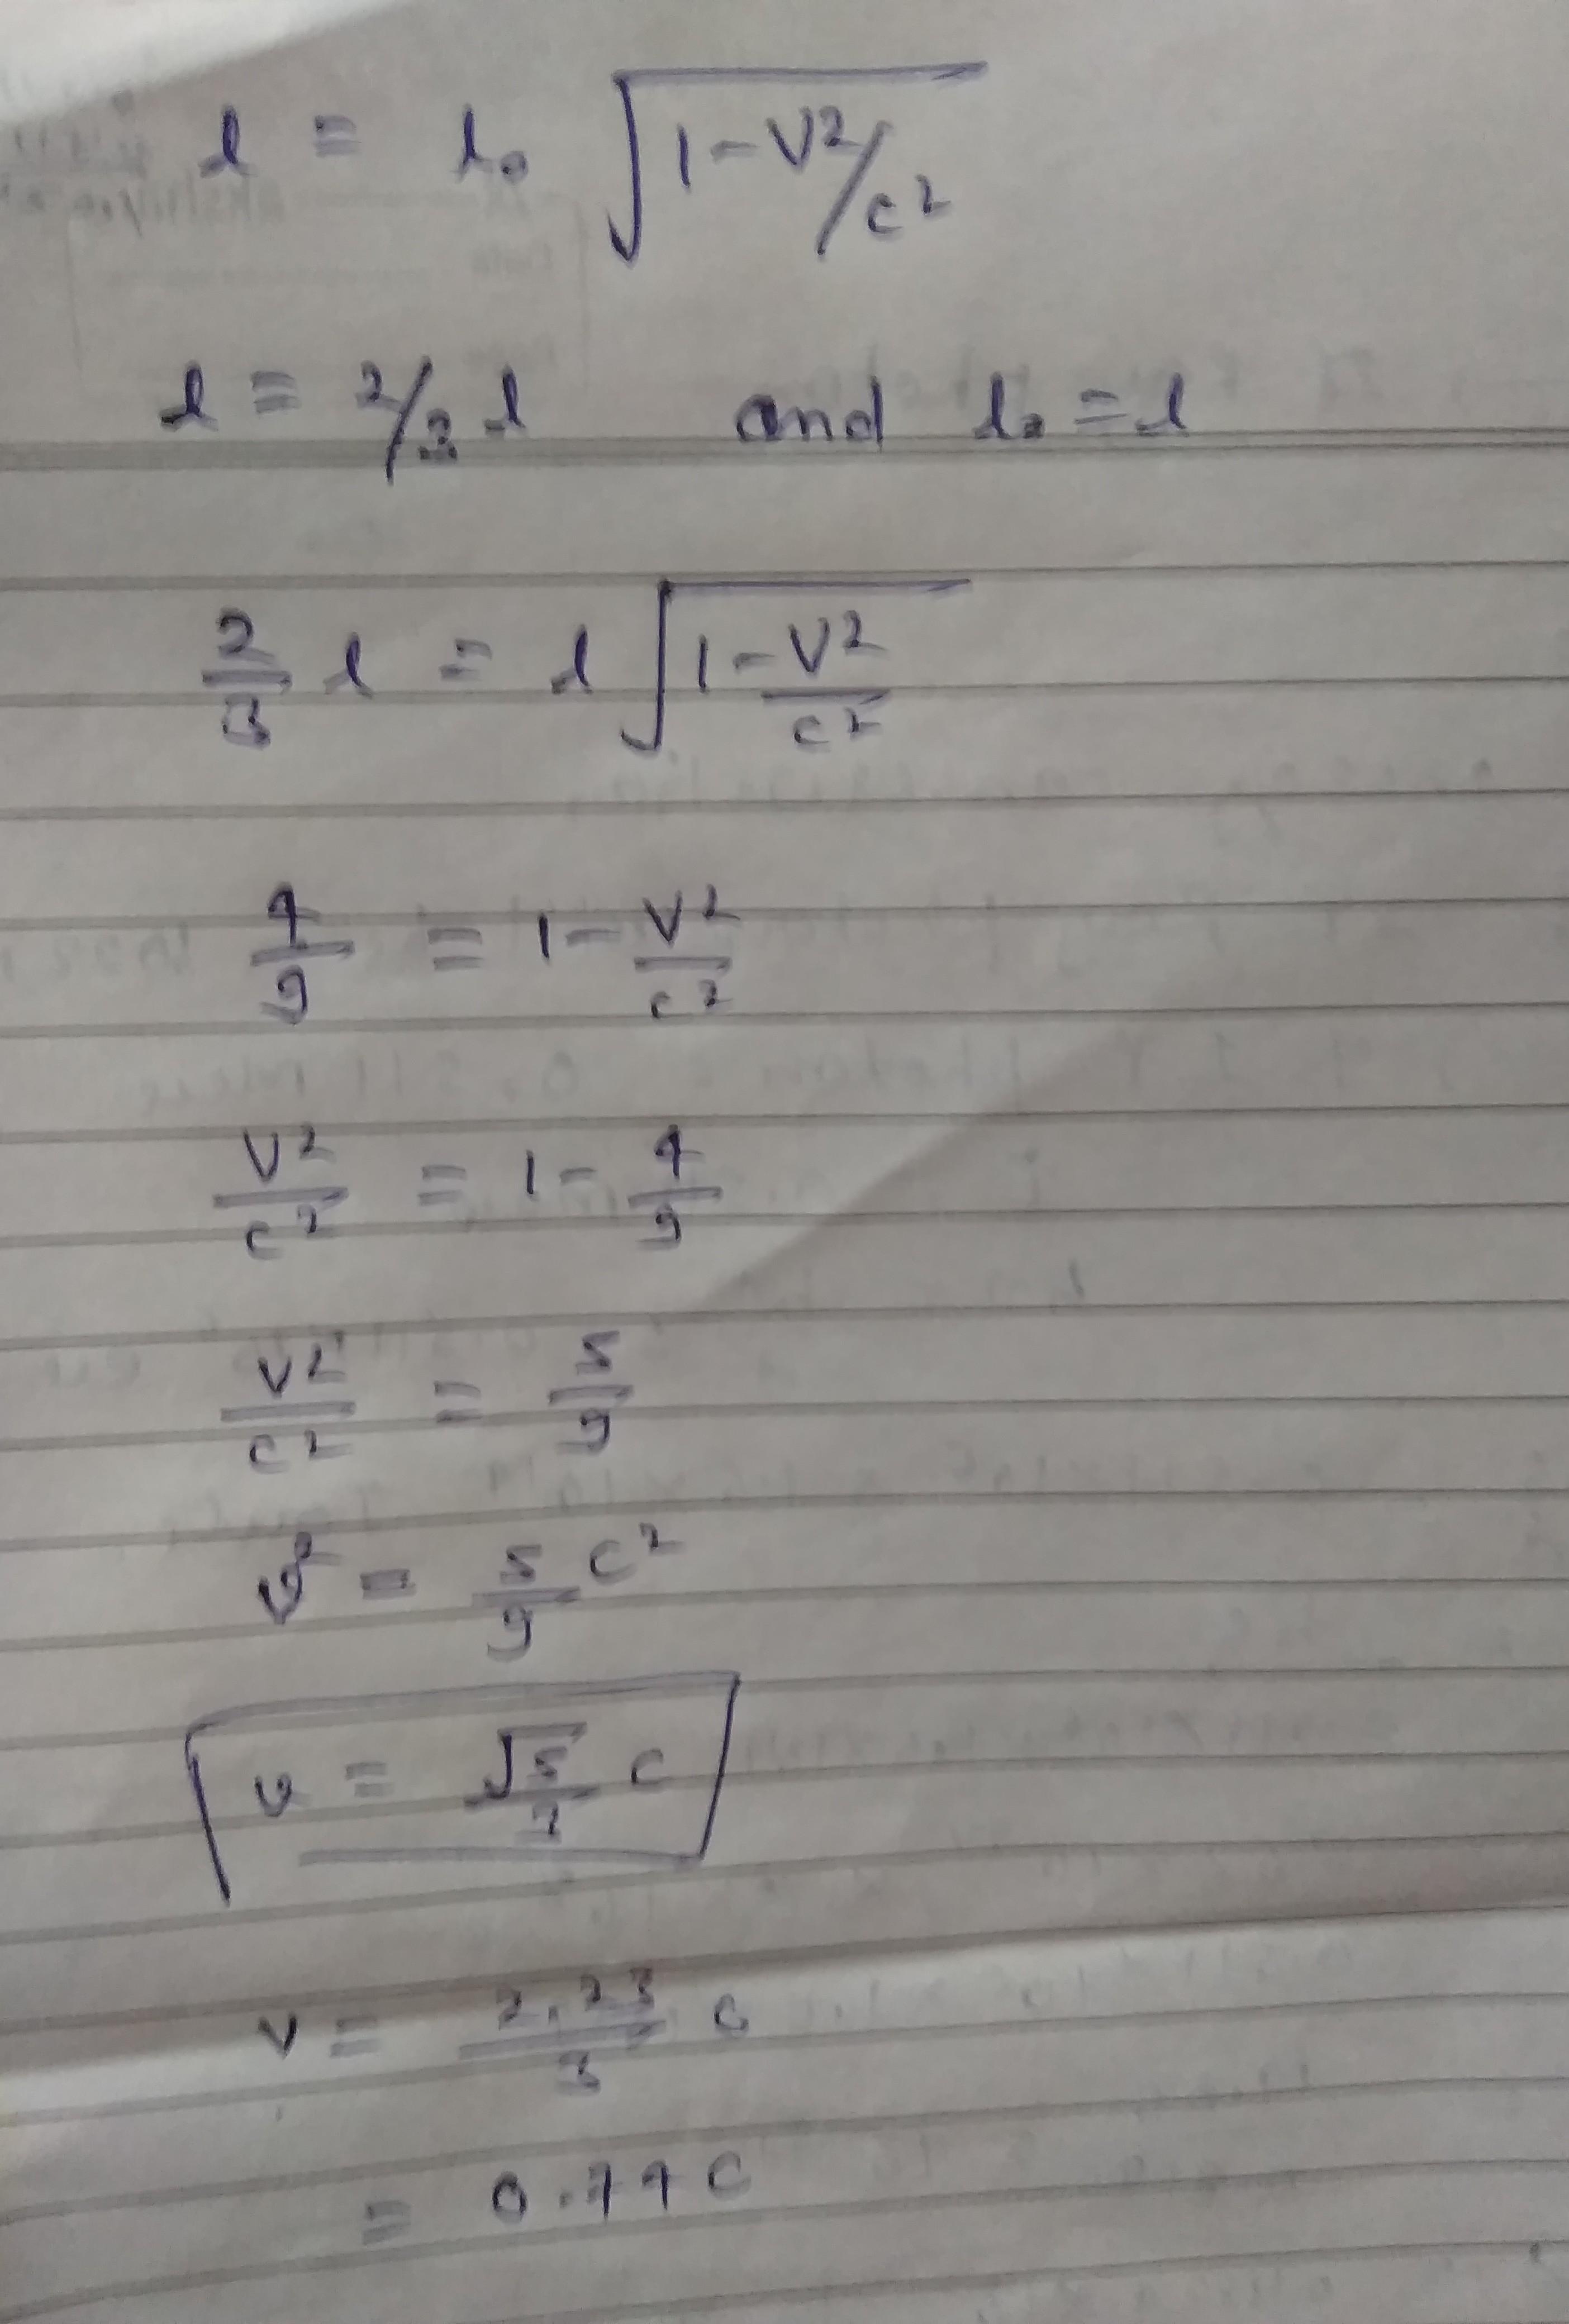 l = l₀ √(1 - V²/c²)
l = 2/3 l and l₀ = l
2/3 l = l √(1 - V²/c²)
4/9 = 1 - V²/c²
V²/c² = 1 - 4/9
V²/c² = 5/9
v² = 5/9 c²
v = √5/3 c
v = 2.23/3 c
= 0.74 c